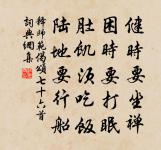 健時要坐禪
困時要打眠
肚飢須吃飯
陸地要行船
釋師範偈頌七十六首
詞典網集